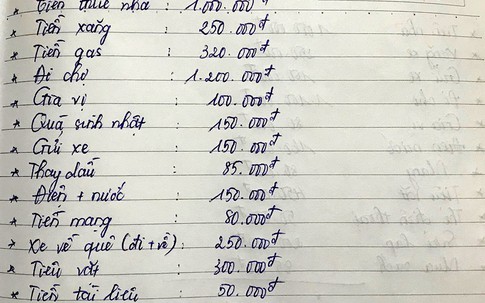 * Tiền thuê nhà : 1.000.000đ
* Tiền xăng : 250.000đ
* Tiền gas : 320.000đ
* Đi chợ : 1.200.000đ
* Gia vị : 100.000đ
* Quà sinh nhật : 150.000đ
* Gửi xe : 150.000đ
* Thay dầu : 85.000đ
* Điện + nước : 150.000đ
* Tiền mạng : 80.000đ
* Xe về quê (đi + về) : 250.000đ
* Tiêu vặt : 300.000đ
* Tiền tài liệu : 50.000đ